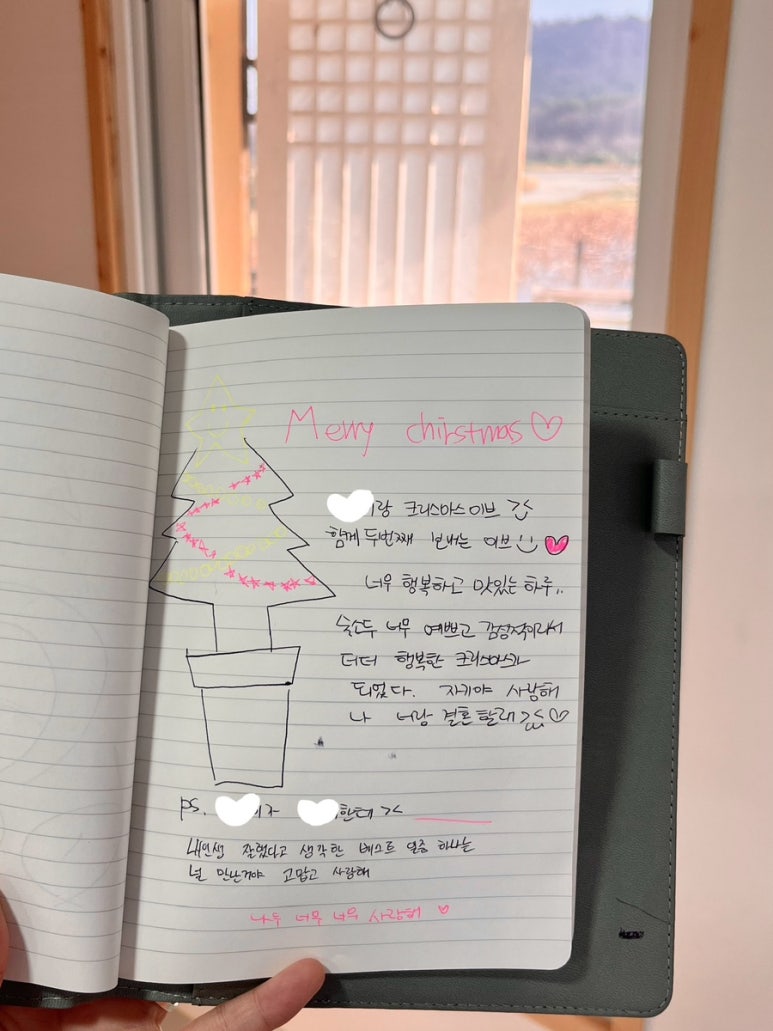 Merry chirstmas♡
랑 크리스마스 이브 ><
함께 두번째 보내는 이브 :) ♥
너무 행복하고 맛있는 하루..
숙소두 너무 예쁘고 감성적이라서
더더 행복한 크리스마스가
되었다. 자기야 사랑해
나 너랑 결혼할래 ><♡
ps. 가 한테 ><
내인생 잘했다고 생각한 베스트 일중 하나는
널 만난거야 고맙고 사랑해
나두 너무 너무 사랑해 ♡